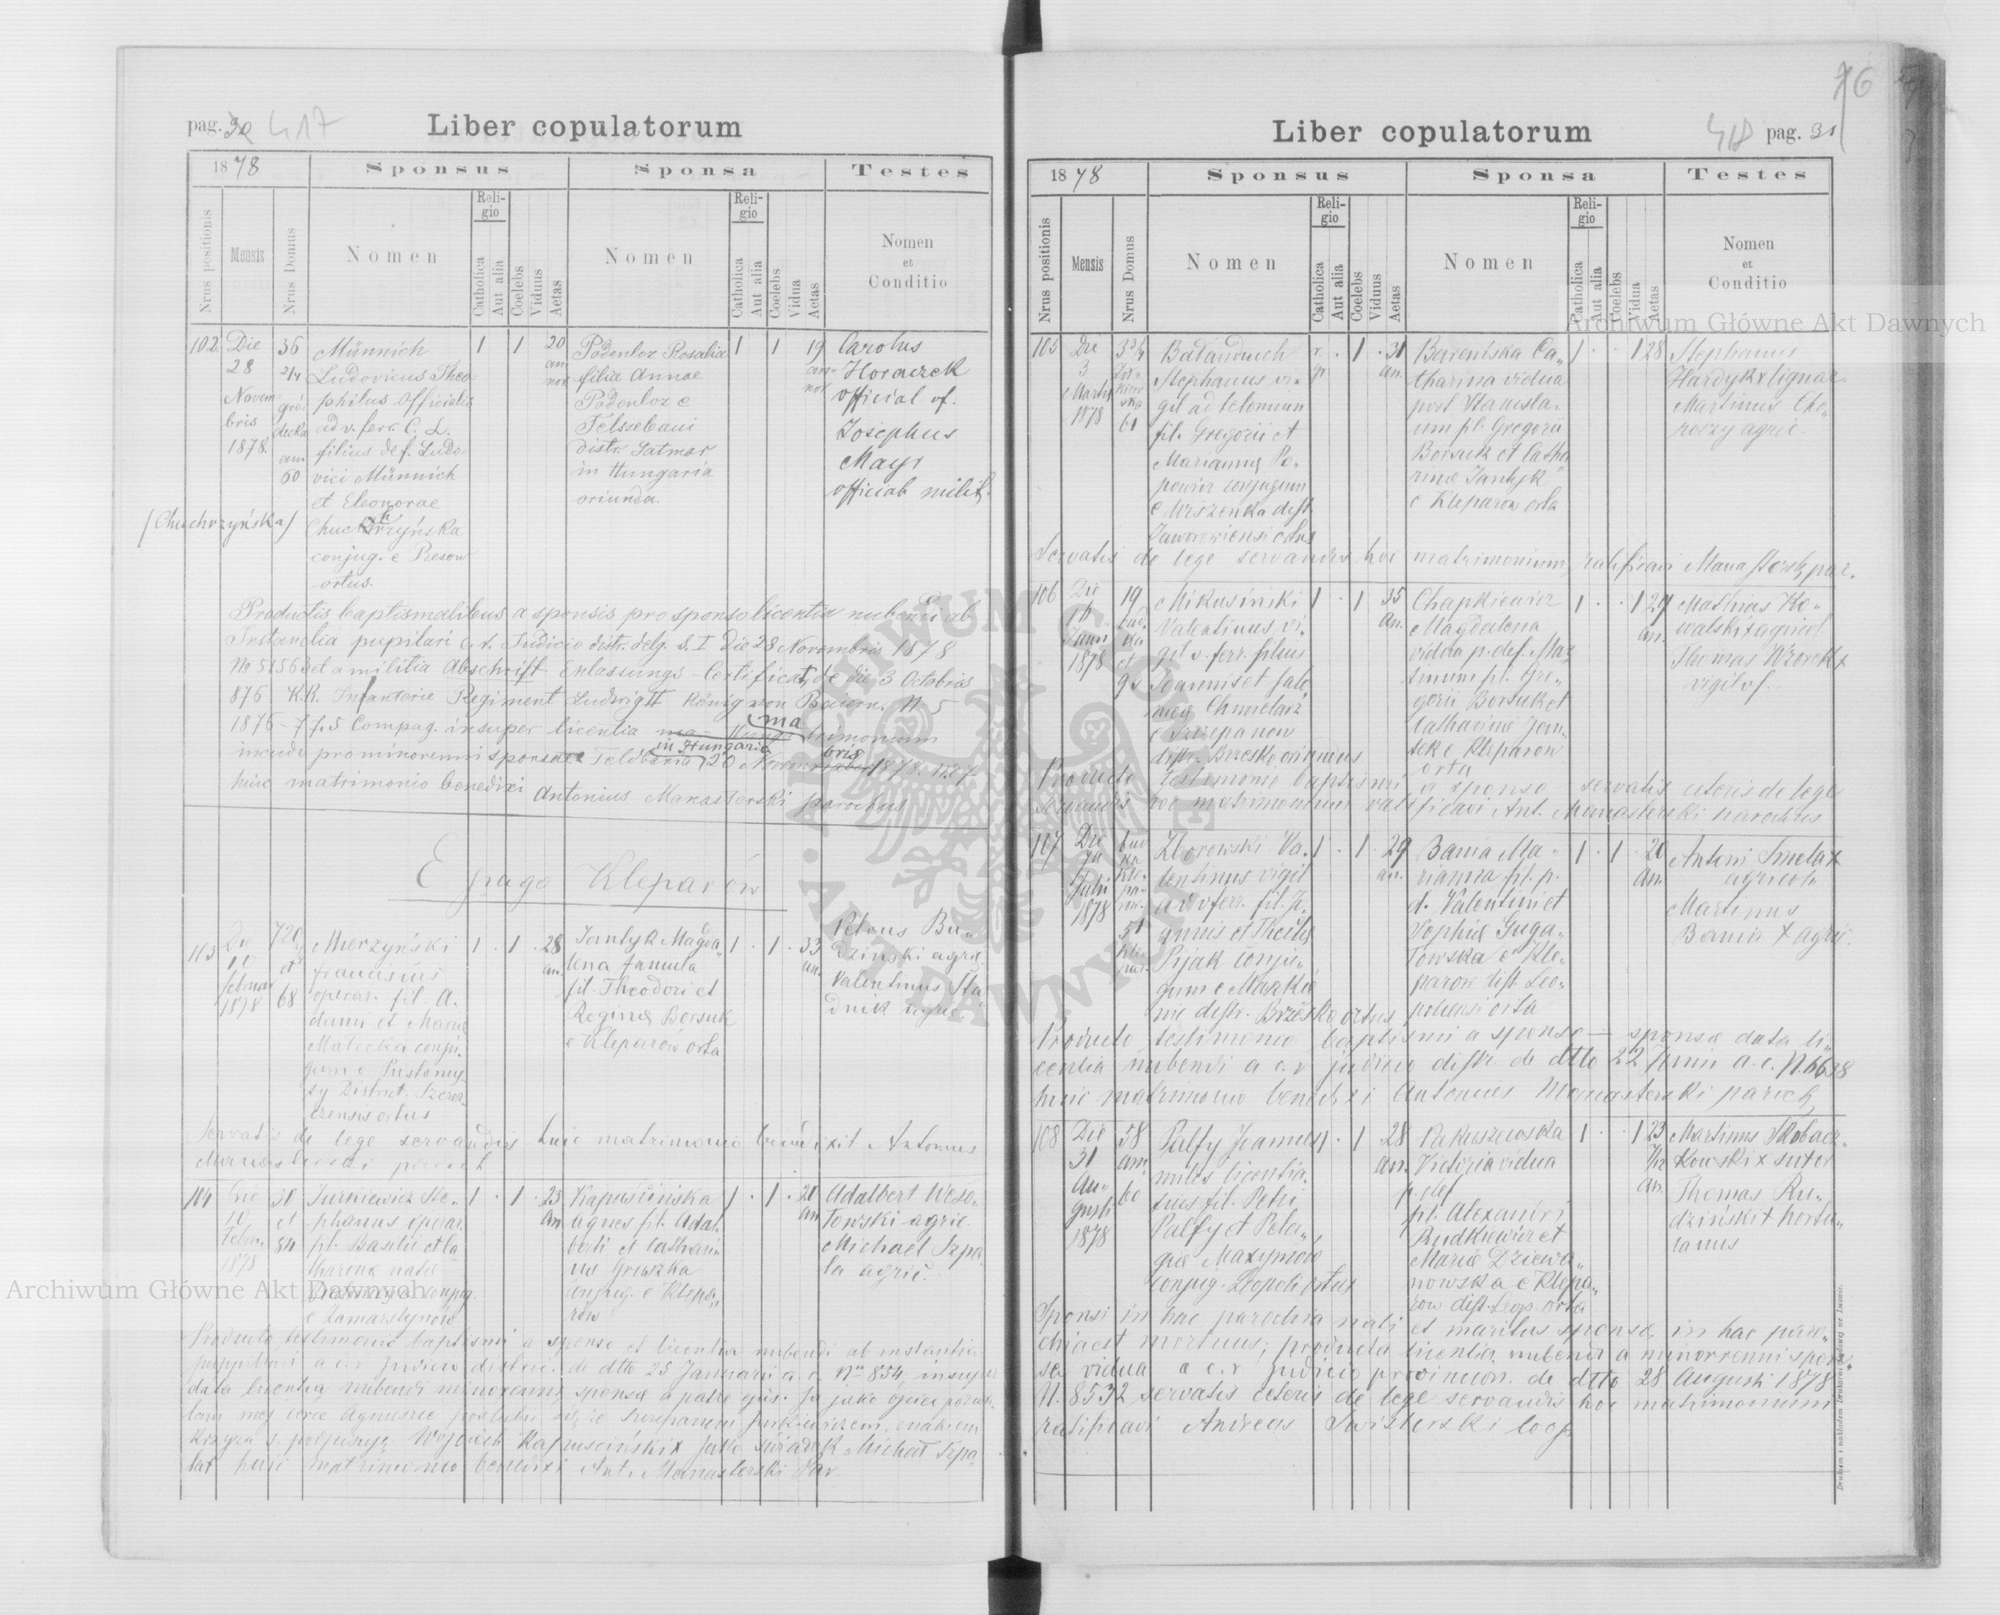 pag. 30 417
Liber copulatorum
1878
Sponsus
Sponsa
Testes
Nrus positionis
Mensis
Nrus Domus
Nomen
Religio
Catholica
Aut alia
Coelebs
Viduus
Aetas
Nomen
Religio
Catholica
Aut alia
Coelebs
Vidua
Aetas
Nomen
et
Conditio
102. Die 28 Novembris 1878.
36 2/4 gródecka am 60
Münnich
Ludovicus Theo-
philus Officialis
ad v. ferr. C. L.
filius def. Ludo-
vici Münnich
et Eleonorae
Chuchrzyńska
(Chuchrzyńska)
conjug. e Resow
ortus.
1 1 20 an
Podenloz Rosalia
filia Annae
Podenloz e
distr. Satmar
in Hungaria
oriunda.
1 1 19
Carolus
Horaczek
official vf.
Josephus
Mayr
official milit.
Productis baptismalibus a sponsis pro sponso licentia nubendi ab
Instantia pupilari C. t. Judicio distr. delg. S. I die 28 Novembris 1878
No 5156 del a militia Abschrift Enlassungs-Certificat de die 3 Octobris
876 K.K. Infanterie Regiment Ludwig II König von Baiern N 5
1876-77. 5 Compag. insuper licentia matrimonium
ineundi pro minorenni sponsae in Hungaria 20 Novembris 1878. 1727
huic matrimonio benedixi Antonius Manasterski parochus
E pago Kleparów
103
10
1878
720
et
68
Mierzyński
Franciscus
operar. fil. A-
dami et Mariae
Małecka conju-
gum e
District.
ortus
1 . 1 . 28 an.
Jantyk Magda-
lena famula
fil. Theodori et
Reginae Borsuk
e Kleparów orta
1 . 1 . 33 an.
Petrus Bu-
dzinski agric.
Valentinus Sta-
dnik agric.
Servatis de lege servandis huic matrimonio benedixit Antonius
Manasterski paroch.
104
10
1878
30
et
84
Jurkiewicz Ste-
phanus operar.
fil. Basilii et Ca-
tharinae natae
conjug.
e Zamarstynów
1 . 1 . 25 an
Kapuścińska
Agnes fil. Adal-
berti et Cathari-
nae Gruszka
conjug. e Klepa-
rów
1 . 1 . 20 an
Adalbert Weso-
łowski agric.
Michael Szpa-
la agric.
Producto testimonio baptismi a sponso et licentia nubendi ab instantia
puppillari a c.r. judicio district. de dtto 25 Januarii a. c. Nro 854, insuper
data licentia nubendi minorenni sponsae a patre ejus. Ja jako ojciec pozwa-
lam mej córce Agnieszce poślubić się ze Szczepanem Jurkiewiczem, znakiem
krzyża s. podpisuję Wojciech Kapuściński x Jako świadek Michał Szpa-
lat huic matrimonio benedixi Ant. Manasterski Par
76
Liber copulatorum
418 pag. 31
1878
Sponsus
Sponsa
Testes
Nrus positionis
Mensis
Nrus Domus
Nomen
Religio
Catholica
Aut alia
Coelebs
Viduus
Aetas
Nomen
Religio
Catholica
Aut alia
Coelebs
Vidua
Aetas
Nomen
et
Conditio
105
Die
3
1878
61
Bałanduch
Stephanus vi-
gil ad telonium
fil. Gregorii et
Mariannae Po-
powicz conjugum
e Wrszenka dist.
Jaworowiensi ortus
1 . 31 an.
Bareńska Ca-
tharina vidua
post Stanisla-
um fil. Gregorii
Borsuk et Catha-
rinae Jantyk
e Kleparow orta
1 . . 1 28
Stephanus
Hardyk x lignar.
Martinus Cho-
roszy agric.
Servatis de lege servandis hoc matrimonium ratificavi Manasterski par.
106
Die
16
Junii
1878
19
et
92
Mikusiński
Valentinus vi-
gil v. ferr. filius
Joannis et Salo-
meae Chmielarz
e Szczepanow
distr. Brzesko oriundus
1 . 1 35 an.
Chapkiewicz
Magdalena
vidua p. def. Max-
imum fil. Gre-
gorii Borsuk et
Catharinae Jan-
tyk e Kleparow
orta
1 . . 1 29 an.
Mathias Ko-
walski x agricol
Thomas Wzorek x
vigil vf.
Producto testimonio baptismi a sponso servatis ceteris de lege
servandis hoc matrimonium ratificavi Ant. Manasterski parochus
107
Die
Julii
1878
51
Zborowski Va-
lentinus vigil
ad v. ferr. fil. Jo-
annis et Theclae
Pijak conju-
gum e Maszkie-
nic distr. Brzesko ortus
1 . 1 . 29 an.
Bania Ma-
rianna fil. p.
d. Valentini et
Sophiae Guga-
łowska e Kle-
parow dist. Leo-
poliensi orta
1 . 1 . 20 an.
Antoni Smela x
agricola
Martinus
Bania x agric.
Producto testimonio baptismi a sponso — sponsae data li-
centia nubendi a c.r. judicio distr. de dtto 22 Junii a. c. N. 6638
huic matrimonio benedixi Antonius Manasterski paroch.
108
Die
31
Au-
gusti
1878
58
am
60
Palfy Joannes
miles licentia-
tus fil. Petri
Palfy et Pela-
giae Maxymow
conjug. Leopoli ortus
1 . 1 28 an.
Pakuszewska
Victoria vidua
p. def
fil. Alexandri
Rudkiewicz et
Mariae Dziewa-
nowska e Klepa-
row dist. Leop. orta
1 . . 1 23 7/12 an.
Martinus Skobacz-
kowski x sutor
Thomas Ru-
dziński x hortu-
lanus
Sponsi in hac parochia nati et maritus sponsae in hac paro-
chia est mortuus; producta licentia nubendi a minorenni spon-
sa vidua a c.r judicio provincion. de dtto 28 Augusti 1878
N. 8532 servatis ceteris de lege servandis hoc matrimonium
ratificavi Andreas Swisterski coop
Archiwum Główne Akt Dawnych
Archiwum Główne Akt Dawnych
ARCHIWUM GŁÓWNE AKT DAWNYCH